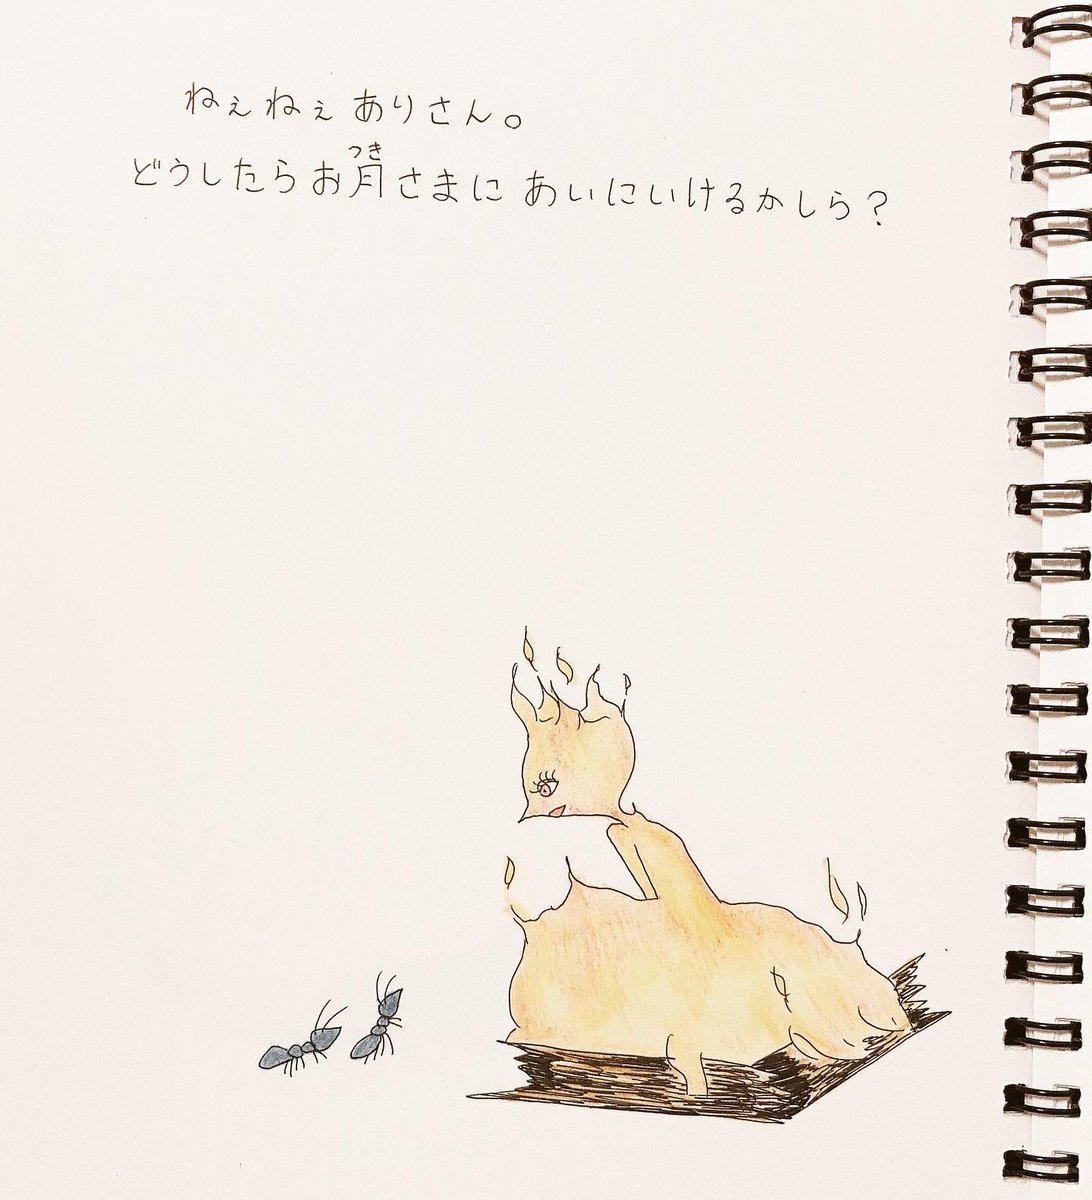 ねぇねぇ ありさん。
どうしたらお月さまに あいにいけるかしら?
つき